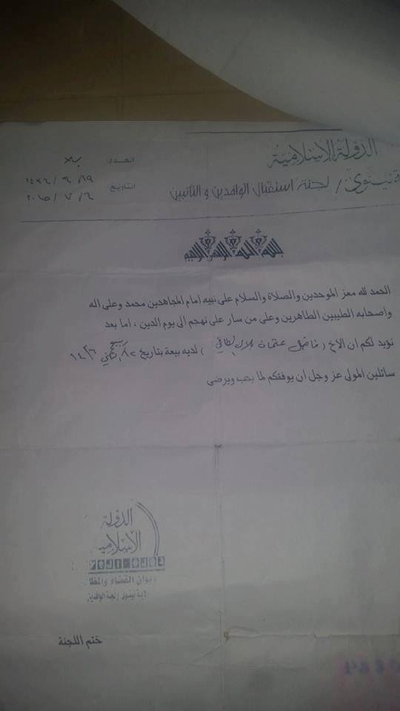 الدولة الاسلامية
نينوى / لجنة استقبال الوافدين والتائبين
العدد
التاريخ ١٤٣٦ / ٩ / ١٩
٢٠١٥ / ٧ / ٦
الحمد لله معز الموحدين والصلاة والسلام على نبيه امام المجاهدين محمد وعلى اله
واصحابه الطيبين الطاهرين وعلى من سار على نهجهم الى يوم الدين ، اما بعد
نؤيد لكم ان الاخ ( عثمان ) لديه بيعة بتاريخ
سائلين المولى عز وجل ان يوفقكم لما يحب ويرضى
الدولة
الاسلامية
ديوان القضاء
ختم اللجنة